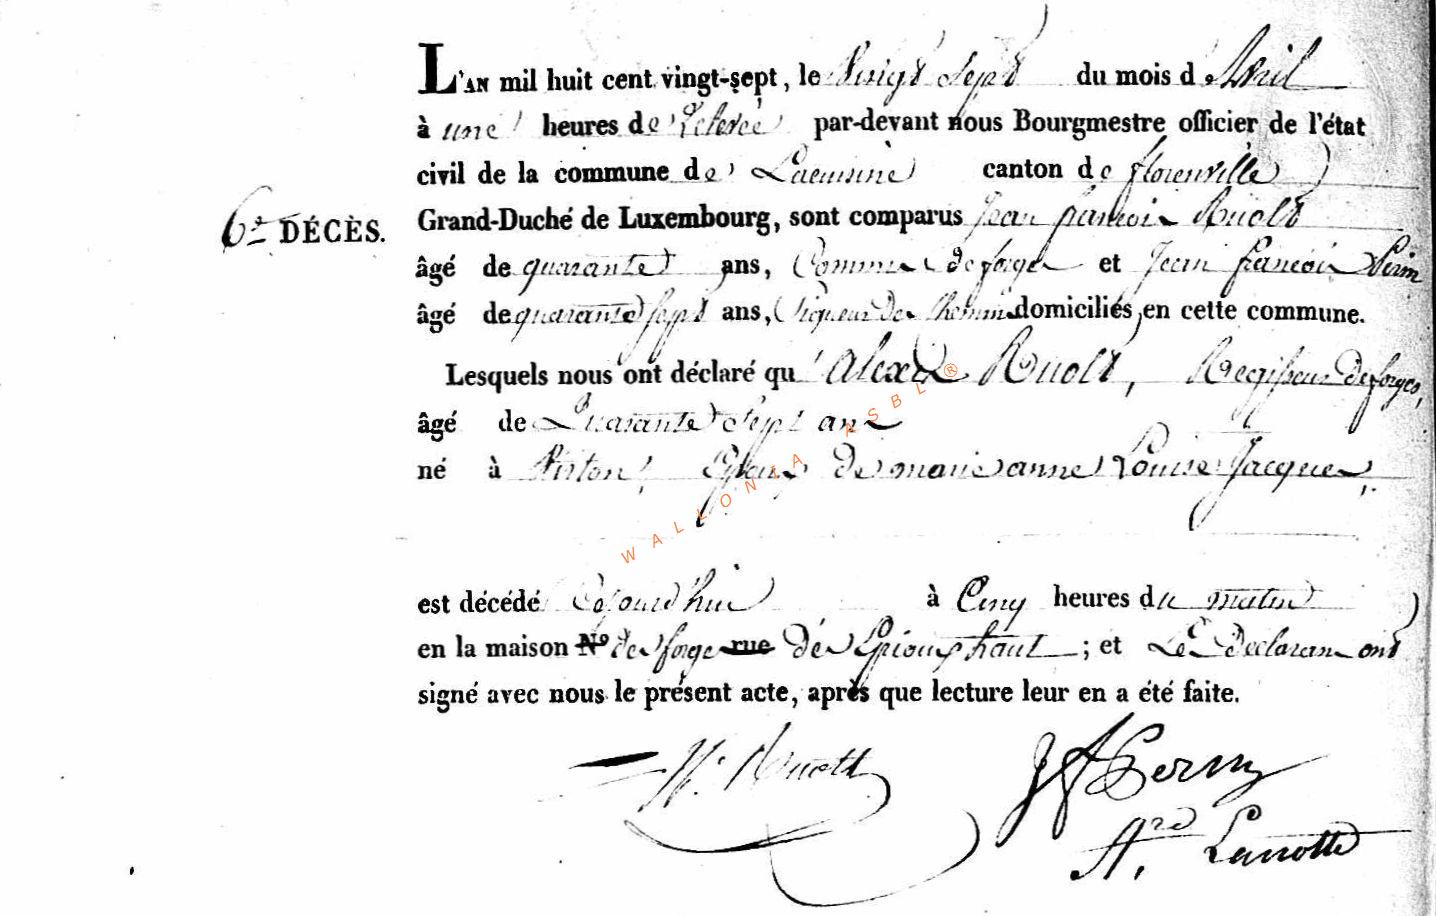 L'AN mil huit cent vingt-sept, le Vingt Sept du mois d'Avril
à une heures de Relevée par-devant nous Bourgmestre officier de l'état
civil de la commune de Lacuisine canton de florenville
6e DÉCÈS. Grand-Duché de Luxembourg, sont comparus Jean francois Ruolt
âgé de quarante ans, Commis de forge et Jean francois Pernin
âgé de quarante sept ans, Piqueur de Chemin domiciliés en cette commune.
Lesquels nous ont déclaré qu' Alexdre Ruolt, Regisseur de forges,
âgé de Quarante Sept ans
né à Virton, Epoux de marie anne Louise Jacques,
est décédé aujourd'hui à Cinq heures du matin
en la maison No de forge rue de Epioux haut; et Les Declarans ont
signé avec nous le présent acte, après que lecture leur en a été faite.
Ruolt
JF Pernin
A.re Lanotte
WALLONIA ASBL ®